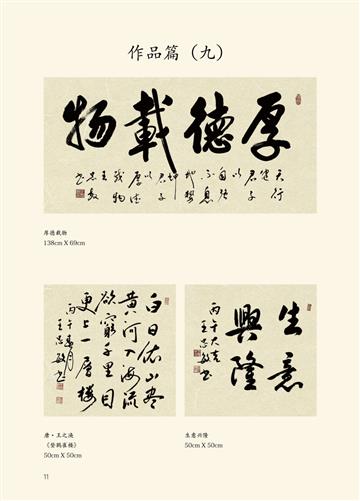 作品篇（九）
厚德載物
天行
健
君子
以
自強
不息
地勢
坤
君子
以
厚德
載物
厚德载物
138cm X 69cm
白日依山盡
黄河入海流
欲窮千里目
更上一層樓
丙午
王忠敏书
生意
興隆
丙午大吉
王忠敏书
唐·王之涣
《登鹳雀楼》
50cm X 50cm
生意兴隆
50cm X 50cm
11